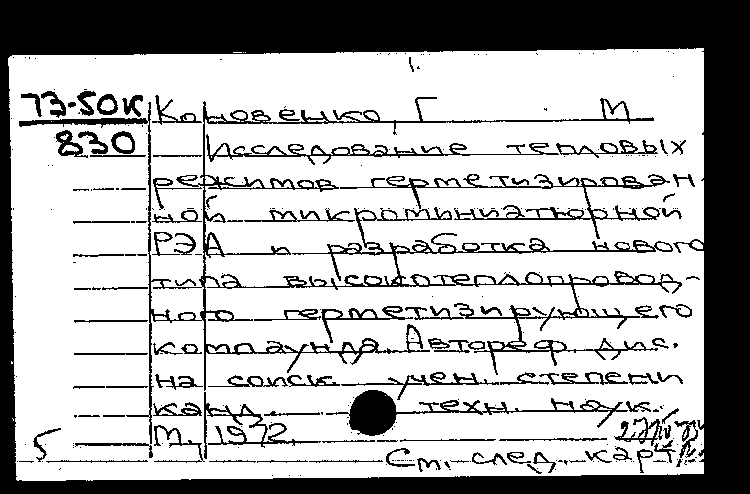 73-50К Коновенко, Г М
830 Исследование тепловых
режимов герметизирован-
ной микроминиатюрной
РЭА и разработка нового
типа высокотеплопровод-
ного герметизирующего
компаунда. Автореф. дис.
на соиск. учен. степени
канд. техн. наук.
М., 1972.
5 См. след. карт